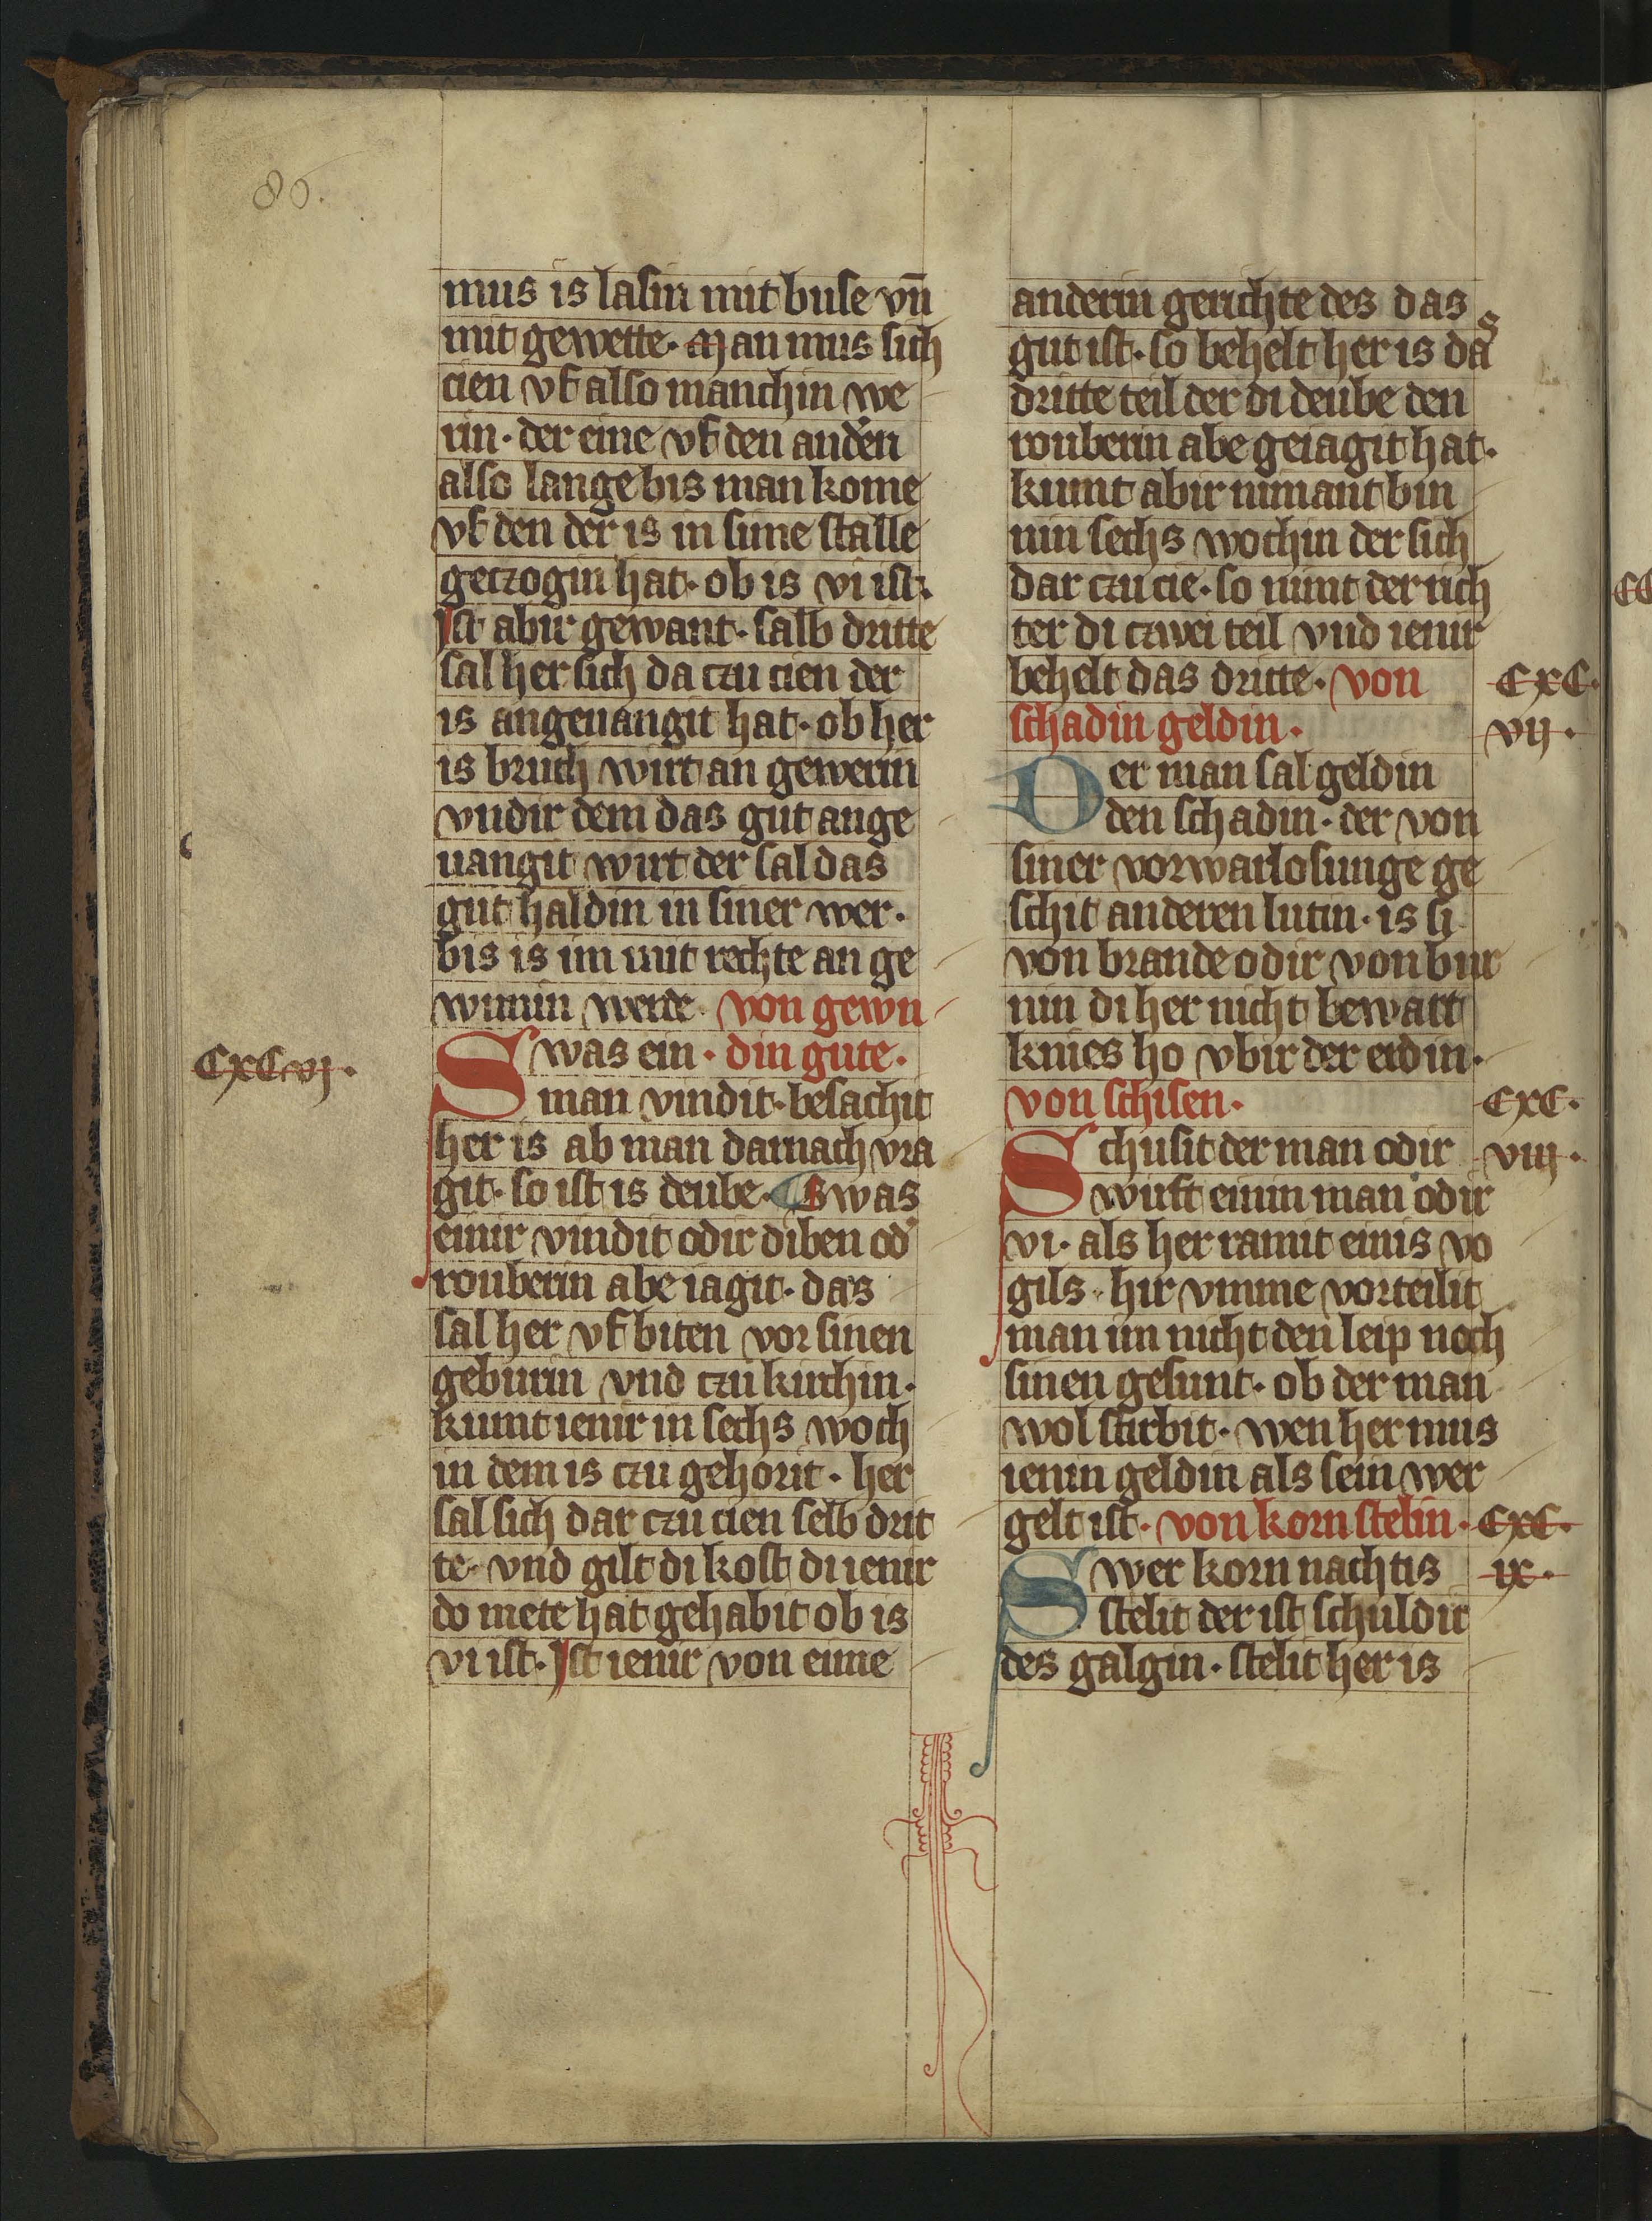 80.
mus is lasin mit buse vn̄
mit gewette. Man mus sich
cien vf also manchin we
rin. der eine vf den andˀen
also lange bis man kome
vf den der is in sime stalle
geczogin hat. ob is vi ist.
Ist abir gewant. salb dritte
sal her sich da czu cien der
is angeuangit hat. ob her
is bruch wirt an gewerin
vndir dem das gut ange
uangit wirt der sal das
gut haldin in siner wer.
bis is im mit rechte an ge
wunin werde. von gewn
CxCvj.
Swas ein. din gute.
man vindit. besachit
her is ab man darnach vra
git. so ist is deube. Swas
einir vindit odir diben odˀ
rouberin abe iagit. das
sal her vf biten vor sinen
geburin vnd czu kirchin.
kumt ienir in sechs woch
in dem is czu gehorit. her
sal sich dar czu cien selb drit
te. vnd gilt di kost di ienir
do mete hat gehabit ob is
vi ist. Ist ienir von eime
anderin gerichte des das
gut ist. so behelt her is das
dritte teil der di deube den
rouberin abe geiagit hat.
kumt abir nimant bin
nin sechs wochin der sich
dar czu cie. so nimt der rich
ter di czwei teil vnd ienir
behelt das dritte. von
CxC.
schadin geldin.
vij.
Der man sal geldin
den schadin. der von
siner vorwarlosunge ge
schit anderen lutin. is si
von brande odir von bur
nin di her nicht bewart
knies ho vbir der erdin.
von schisen.
CxC.
Schusit der man odir
viij.
wirft einin man odir
vi. als her ramit einis vo
gils. hir vmme vorteilit
man im nicht den leip noch
sinen gesunt. ob der man
wol stirbit. wen her mus
ienin geldin als sein wer
gelt ist. von korn stelin.
CxC.
Swer korn nachtis
ix.
stelit der ist schuldic
des galgin. stelit her is